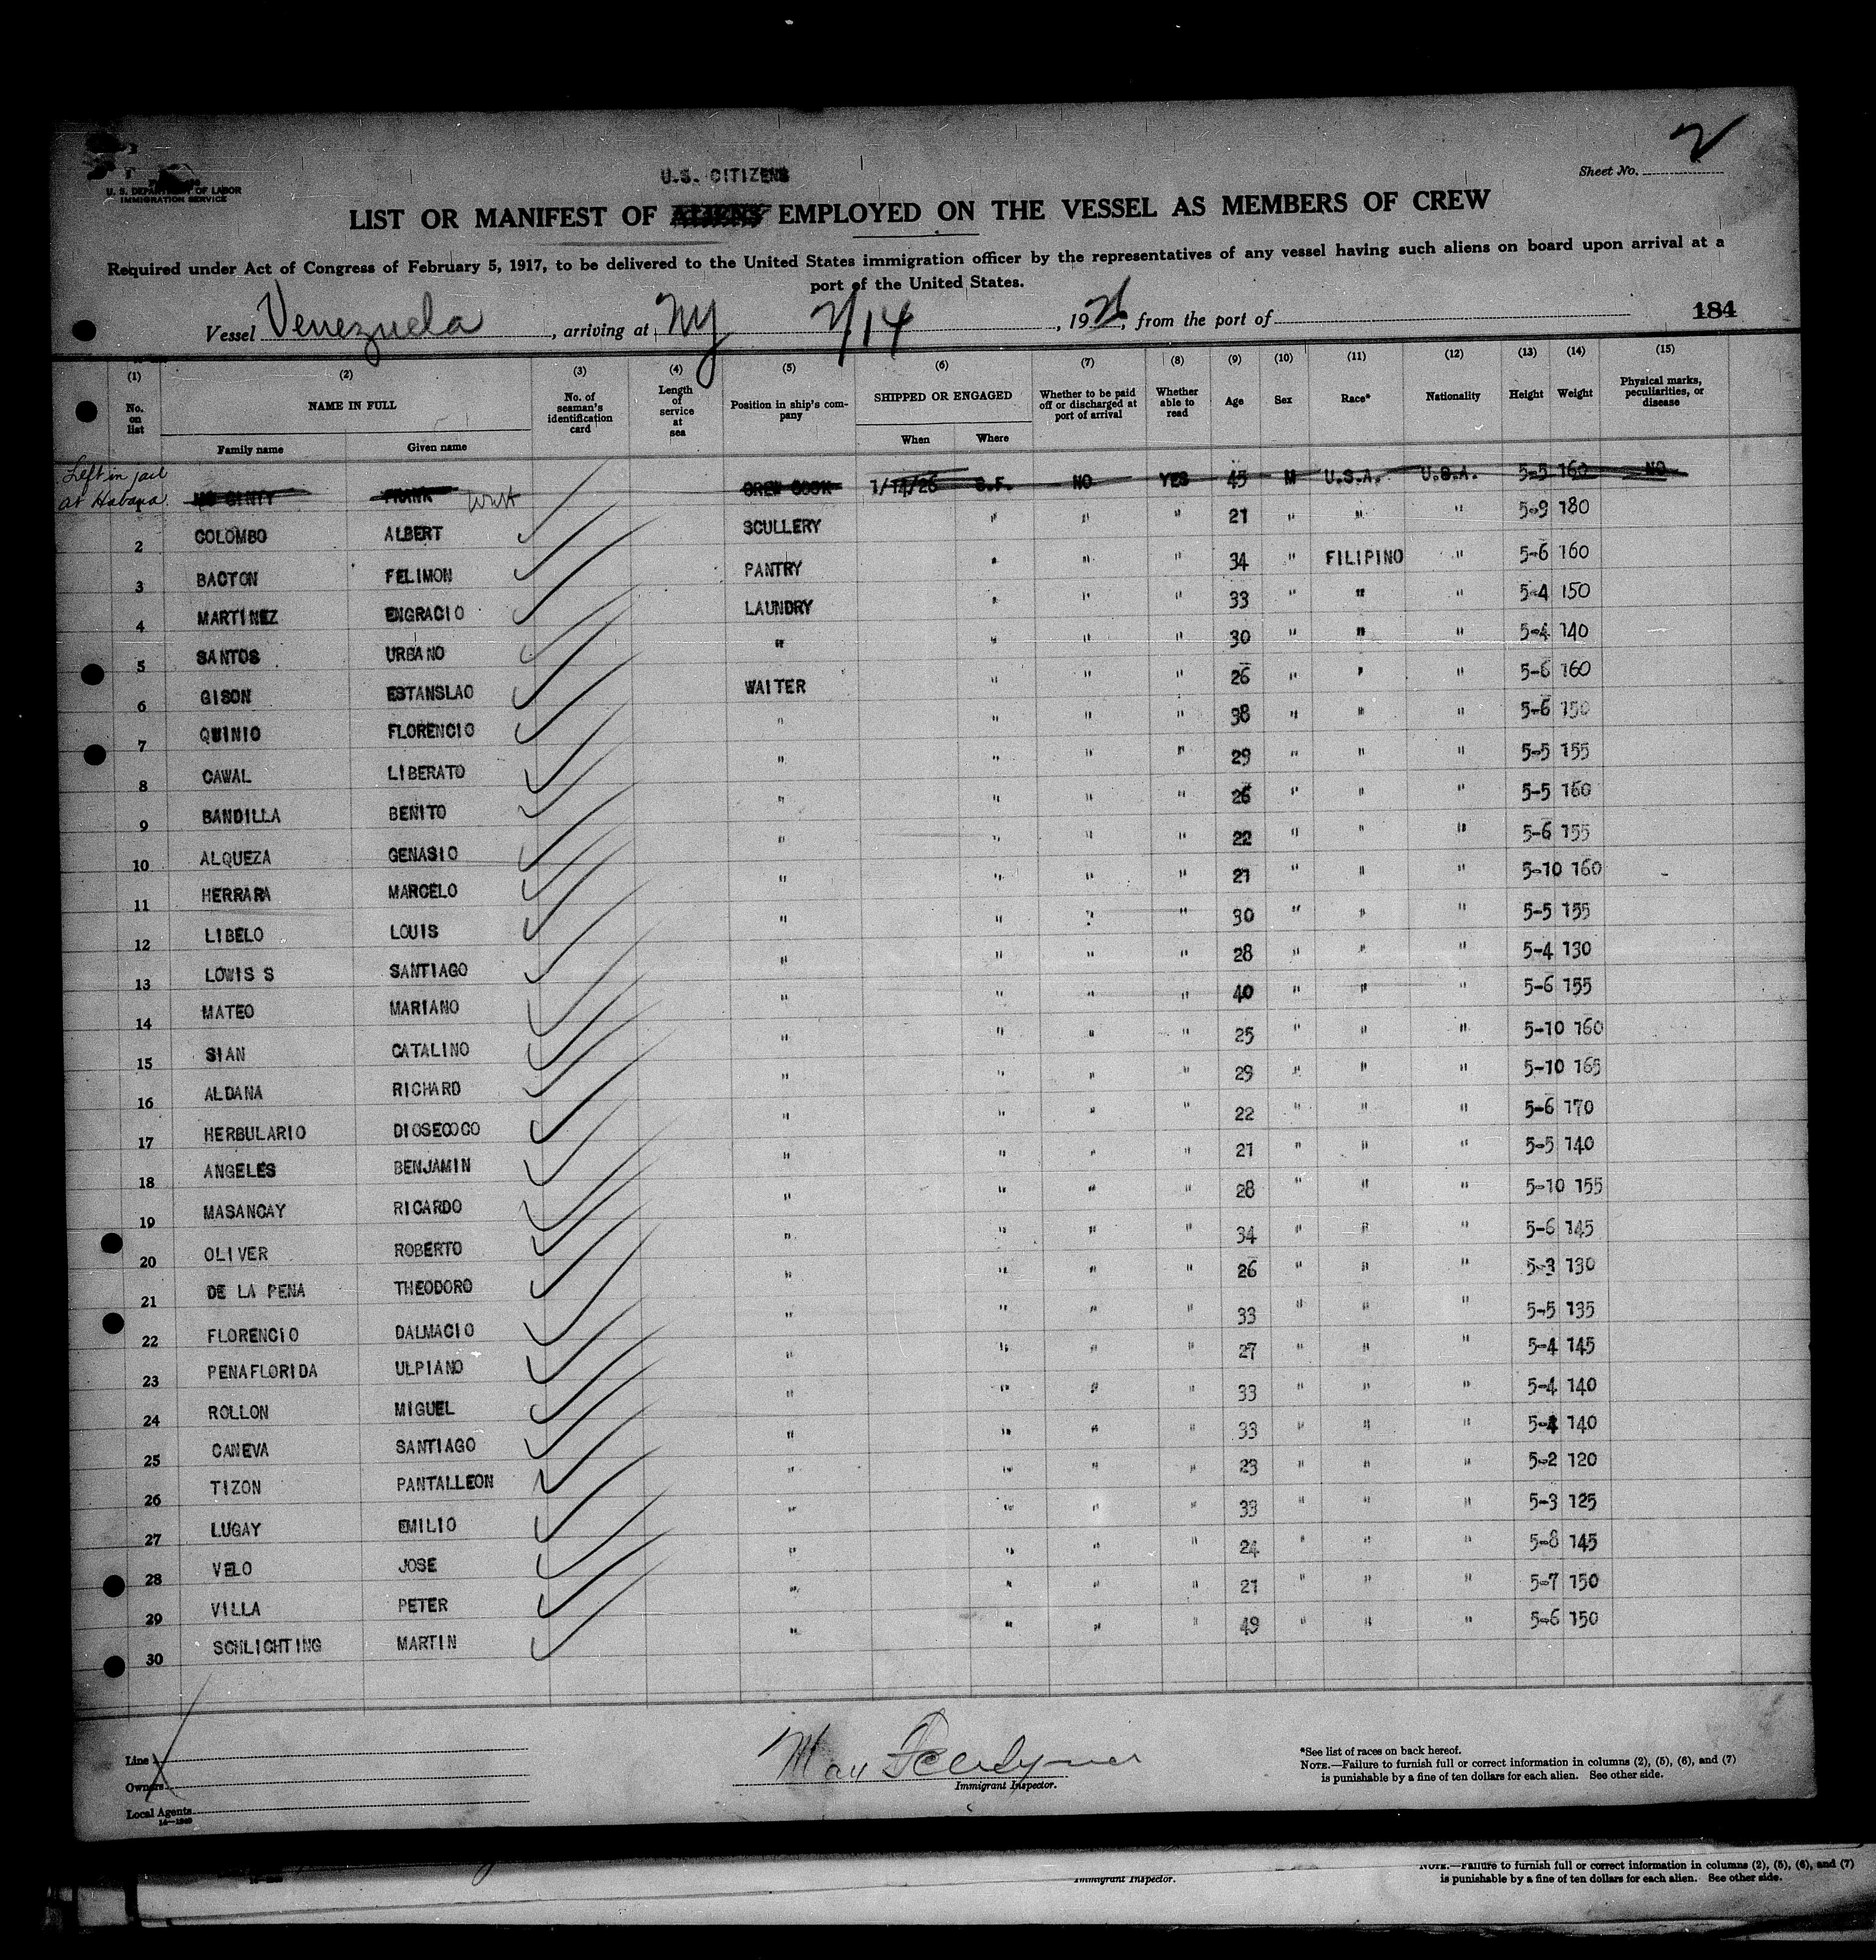 U. S. DEPARTMENT OF LABOR
IMMIGRATION SERVICE
2
Sheet No.
U.S. CITIZENS
LIST OR MANIFEST OF ALIENS EMPLOYED ON THE VESSEL AS MEMBERS OF CREW
Required under Act of Congress of February 5, 1917, to be delivered to the United States immigration officer by the representatives of any vessel having such aliens on board upon arrival at a
port of the United States.
184
Vessel Venezuela, arriving at NY 2/14, 1926, from the port of
(1) (2) (3) (4) (5) (6) (7) (8) (9) (10) (11) (12) (13) (14) (15)
No. on list NAME IN FULL No. of seaman's identification card Length of service at sea Position in ship's company SHIPPED OR ENGAGED Whether to be paid off or discharged at port of arrival Whether able to read Age Sex Race* Nationality Height Weight Physical marks, peculiarities, or disease
Family name Given name When Where
Left in jail
at Habana
MC GINTY FRANK CREW COOK 1/14/26 S.F. NO YES 45 M U.S.A. U.S.A. 5-5 160 NO
2 COLOMBO ALBERT SCULLERY " " " 21 " " " 5-9 180
3 BACTON FELIMON PANTRY " " " 34 " FILIPINO " 5-6 160
4 MARTINEZ ENGRACIO LAUNDRY " " " 33 " " " 5-4 150
5 SANTOS URBANO " " " " 30 " " " 5-4 140
6 GISON ESTANSLAO WAITER " " " 26 " " " 5-6 160
7 QUINIO FLORENCIO " " " " 38 " " " 5-6 150
8 CAWAL LIBERATO " " " " 29 " " " 5-5 155
9 BANDILLA BENITO " " " " 26 " " " 5-5 160
10 ALQUEZA GENASIO " " " " 22 " " " 5-6 155
11 HERRARA MARCELO " " " " 21 " " " 5-10 160
12 LIBELO LOUIS " " " " 30 " " " 5-5 155
13 LOWIS S SANTIAGO " " " " 28 " " " 5-4 130
14 MATEO MARIANO " " " " 40 " " " 5-6 155
15 SIAN CATALINO " " " " 25 " " " 5-10 160
16 ALDANA RICHARD " " " " 29 " " " 5-10 165
17 HERBULARIO DIOSECOCO " " " " 22 " " " 5-6 170
18 ANGELES BENJAMIN " " " " 21 " " " 5-5 140
19 MASANCAY RICARDO " " " " 28 " " " 5-10 155
20 OLIVER ROBERTO " " " " 34 " " " 5-6 145
21 DE LA PENA THEODORO " " " " 26 " " " 5-3 130
22 FLORENCIO DALMACIO " " " " 33 " " " 5-5 135
23 PENAFLORIDA ULPIANO " " " " 27 " " " 5-4 145
24 ROLLON MIGUEL " " " " 33 " " " 5-4 140
25 CANEVA SANTIAGO " " " " 33 " " " 5-4 140
26 TIZON PANTALLEON " " " " 23 " " " 5-2 120
27 LUGAY EMILIO " " " " 33 " " " 5-3 125
28 VELO JOSE " " " " 24 " " " 5-8 145
29 VILLA PETER " " " " 21 " " " 5-7 150
30 SCHLICHTING MARTIN " " " " 49 " " " 5-6 150
Line
Owners
Local Agents
Max
Immigrant Inspector.
*See list of races on back hereof.
NOTE.—Failure to furnish full or correct information in columns (2), (5), (6), and (7)
is punishable by a fine of ten dollars for each alien. See other side.
Immigrant Inspector.
NOTE.—Failure to furnish full or correct information in columns (2), (5), (6), and (7)
is punishable by a fine of ten dollars for each alien. See other side.